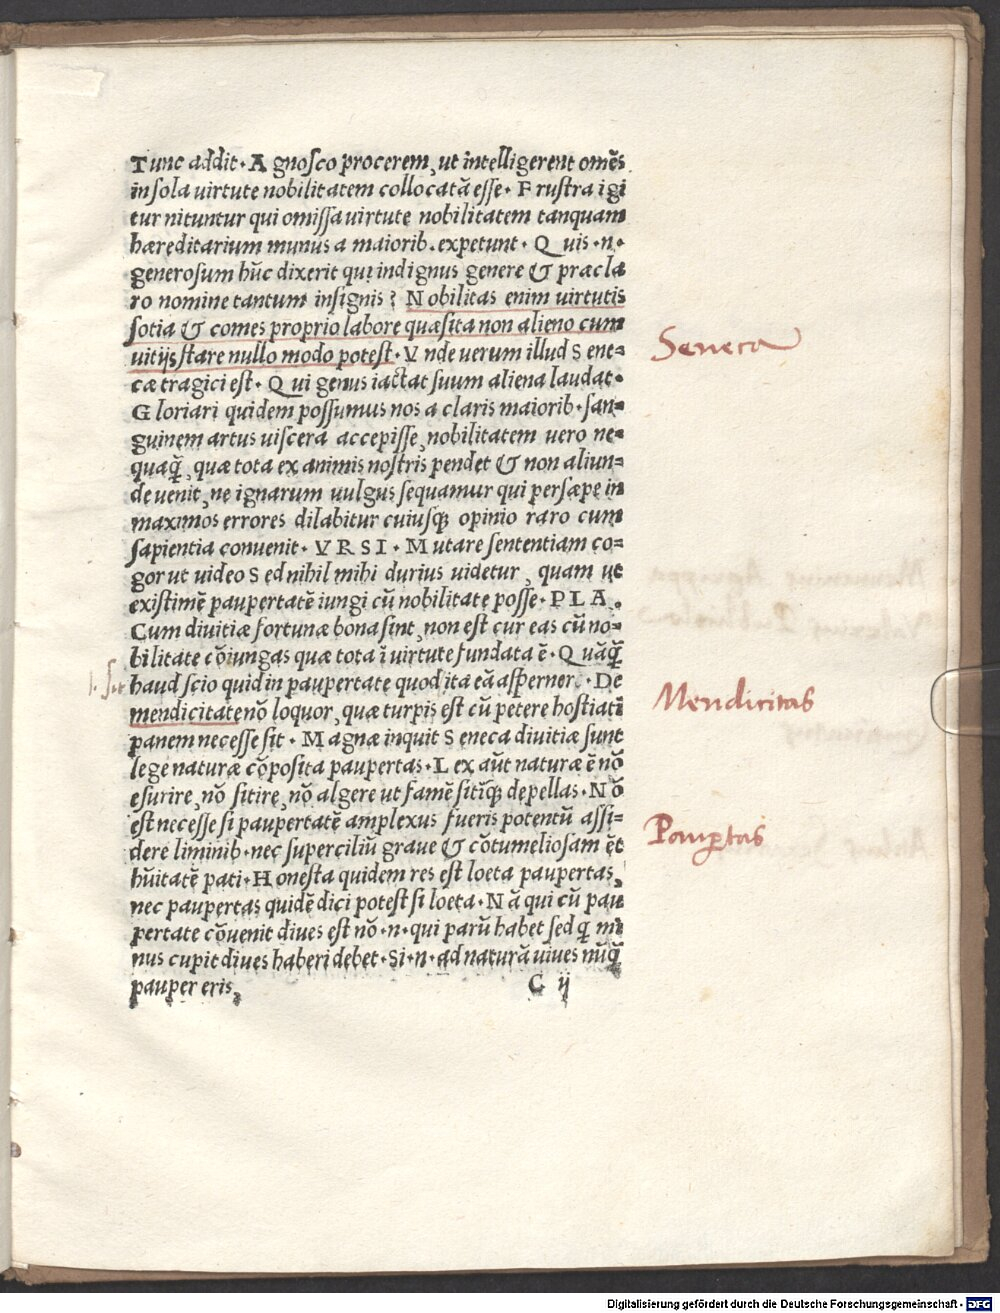 Tunc addit. Agnosco procerem, ut intelligerent omēs
in sola uirtute nobilitatem collocatā esse. Frustra igi
tur nituntur qui omissa uirtute nobilitatem tanquam
hæreditarium munus a maiorib. expetunt. Quis .n.
generosum hūc dixerit qui indignus genere & præcla
ro nomine tantum insignis? Nobilitas enim uirtutis
sotia & comes proprio labore quæsita non alieno cum
uitijs stare nullo modo potest. Vnde uerum illud Sene=
cæ tragici est. Qui genus iactat suum aliena laudat.
Seneca
Gloriari quidem possumus nos a claris maiorib. san=
guinem artus uiscera accepisse, nobilitatem uero ne=
quaq̄, quæ tota ex animis nostris pendet & non aliun=
de uenit, ne ignarum uulgus sequamur qui persæpe in
maximos errores dilabitur cuiusq; opinio raro cum
sapientia conuenit. VRSI. Mutare sententiam co=
gor ut uideo Sed nihil mihi durius uidetur, quam ut
existimē paupertatē iungi cū nobilitate posse. PLA.
Cum diuitiæ fortunæ bona sint, non est cur eas cū no=
bilitate cōiungas quæ tota ī uirtute fundata ē. Quāq̄
haud scio quid in paupertate quod ita eā asperner. De
mendicitate nō loquor, quæ turpis est cū petere hostiatī
Mendicitas
panem necesse sit. Magnæ inquit Seneca diuitiæ sunt
lege naturæ cōposita paupertas. Lex aūt naturæ ē nō
esurire, nō sitire, nō algere ut famē sitīq; depellas. Nō
est necesse si paupertatē amplexus fueris potentū assi=
Paup̄tas
dere liminib. nec superciliū graue & cōtumeliosam ēt
hūitatē pati. Honesta quidem res est loeta paupertas,
nec paupertas quidē dici potest si loeta. Nā qui cū pau
pertate cōuenit diues est nō .n. qui parū habet sed q̄ mi
nus cupit diues haberi debet. Si .n. ad naturā uiues nūq̄
pauper eris,
C ij
Digitalisierung gefördert durch die Deutsche Forschungsgemeinschaft - DFG